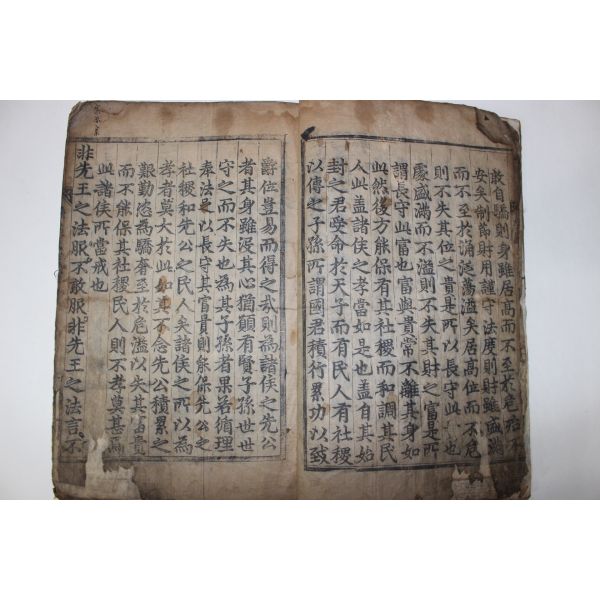 敢自驕則身雖居高而不至於危殆不
安矣制節財用謹守法度則財雖盛滿
而不至於涌泛蕩溢矣居高位而不危
則不失其位之貴是所以長守此 也
處盛滿而不溢則不失其財之富是所
謂長守此富也富與貴常不離其身如
此然後方能保有其社稷而和調其民
人此盖諸侯之孝當如是也盖自其始
封之君受命於天子而有民人有社稷
以傳之子孫所謂國君積行累功以致
爵位豈易而得之哉則為諸侯之先公
者其身雖沒其心猶願有賢子孫世世
守之而不失也為其子孫者果若循理
奉法 以長守其富貴則能保先公之
社稷和先公之民人矣諸侯之所以為
孝者莫大於此如其不念先公積累之
艱勤恣為驕奢至於危溢以失其富貴
而不能保其社稷民人則不孝莫甚焉
此諸侯所當戒也
非先王之法服不敢服非先王之法言不